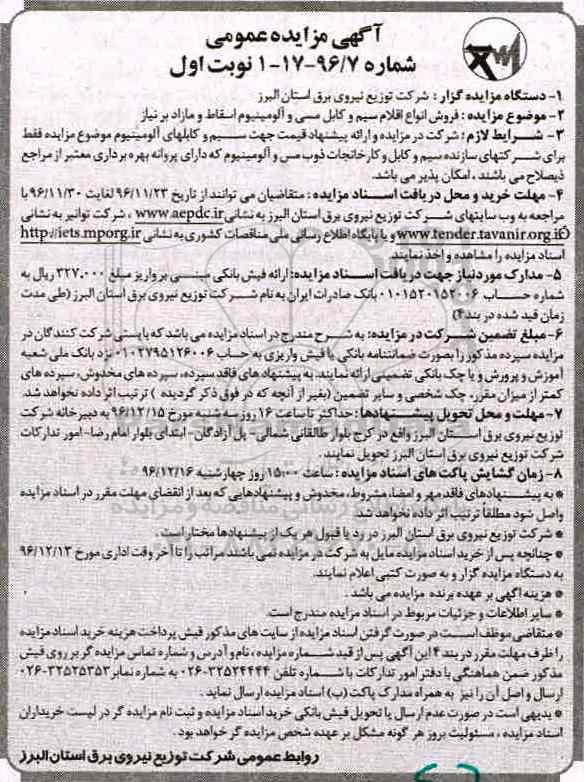 آگهی مزایده عمومی
شماره ۹۶/۷-۱۷-۱ نوبت اول
۱- دستگاه مزایده گزار : شرکت توزیع نیروی برق استان البرز
۲- موضوع مزایده : فروش انواع اقلام سیم و کابل مسی و آلومینیوم اسقاط و مازاد بر نیاز
۳- شرایط لازم : شرکت در مزایده و ارائه پیشنهاد قیمت جهت سیم و کابلهای آلومینیوم موضوع مزایده فقط
برای شرکتهای سازنده سیم و کابل و کارخانجات ذوب مس و آلومینیوم که دارای پروانه بهره برداری معتبر از مراجع
ذیصلاح می باشند ، امکان پذیر می باشد.
۴- مهلت خرید و محل دریافت اسناد مزایده : متقاضیان می توانند از تاریخ ۹۶/۱۱/۲۳ لغایت ۹۶/۱۱/۳۰ با
مراجعه به وب سایتهای شرکت توزیع نیروی برق استان البرز به نشانی www.aepdc.ir ، شرکت توانیر به نشانی
www.tender.tavanir.org.ir و یا پایگاه اطلاع رسانی ملی مناقصات کشوری به نشانی http://iets.mporg.ir
اسناد مزایده را مشاهده و اخذ نمایند
۵- مدارک مورد نیاز جهت دریافت اسناد مزایده: ارائه فیش بانکی مبنی بر واریز مبلغ ۳۲۷.۰۰۰ ریال به
شماره حساب ۰۱۰۱۵۲۰۱۵۲۰۰۶ بانک صادرات ایران به نام شرکت توزیع نیروی برق استان البرز (طی مدت
زمان قید شده در بند ۴)
۶- مبلغ تضمین شرکت در مزایده: به شرح مندرج در اسناد مزایده می باشد که بایستی شرکت کنندگان در
مزایده سپرده مذکور را بصورت ضمانتنامه بانکی یا فیش واریزی به حساب ۰۱۰۲۷۹۵۱۲۶۰۰۶ نزد بانک ملی شعبه
آموزش و پرورش و یا چک بانکی تضمینی ارائه نمایند. به پیشنهاد های فاقد سپرده، سپرده های مخدوش، سپرده های
کمتر از میزان مقرر، چک شخصی و سایر تضمین (بغیر از آنچه که در فوق ذکر گردیده ) ترتیب اثر داده نخواهد شد.
۷- مهلت و محل تحویل پیشنهادها : حداکثر تا ساعت ۱۶ روز سه شنبه مورخ ۹۶/۱۲/۱۵ به دبیرخانه شرکت
توزیع نیروی برق استان البرز واقع در کرج بلوار طالقانی شمالی- پل آزادگان- ابتدای بلوار امام رضا- امور تدارکات
شرکت توزیع نیروی برق استان البرز تحویل نمایند .
۸- زمان گشایش پاکت های اسناد مزایده : ساعت ۱۵:۰۰ روز چهارشنبه ۹۶/۱۲/۱۶
* به پیشنهادهای فاقد مهر و امضا، مشروط، مخدوش و پیشنهادهایی که بعد از انقضای مهلت مقرر در اسناد مزایده
واصل شود مطلقا ترتیب اثر داده نخواهد شد
* شرکت توزیع نیروی برق استان البرز در رد یا قبول هر یک از پیشنهادها مختار است .
* چنانچه پس از خرید اسناد مزایده مایل به شرکت در مزایده نمی باشند مراتب را تا آخر وقت اداری مورخ ۹۶/۱۲/۱۳
به دستگاه مزایده گزار و به صورت کتبی اعلام نمایند.
* هزینه آگهی بر عهده برنده مزایده می باشد .
* سایر اطلاعات و جزئیات مربوط در اسناد مزایده مندرج است.
* متقاضی موظف است در صورت گرفتن اسناد مزایده از سایت های مذکور فیش پرداخت هزینه خرید اسناد مزایده
را ظرف مهلت مقرر در بند ۴ این آگهی پس از قید شماره مزایده ، نام و آدرس و شماره تماس مزایده گر بر روی فیش
مذکور ضمن هماهنگی با دفتر امور تدارکات با شماره تلفن ۳۲۵۲۴۴۴۴-۰۲۶ به شماره نمابر ۳۲۵۲۵۳۵۳-۰۲۶
ارسال و اصل آن را نیز به همراه مدارک پاکت (ب) اسناد مزایده ارسال نماید .
* بدیهی است در صورت عدم ارسال یا تحویل فیش بانکی خرید اسناد مزایده و ثبت نام مزایده گر در لیست خریداران
اسناد مزایده ، مسئولیت بروز هر گونه مشکل بر عهده شخص مزایده گر خواهد بود .
روابط عمومی شرکت توزیع نیروی برق استان البرز